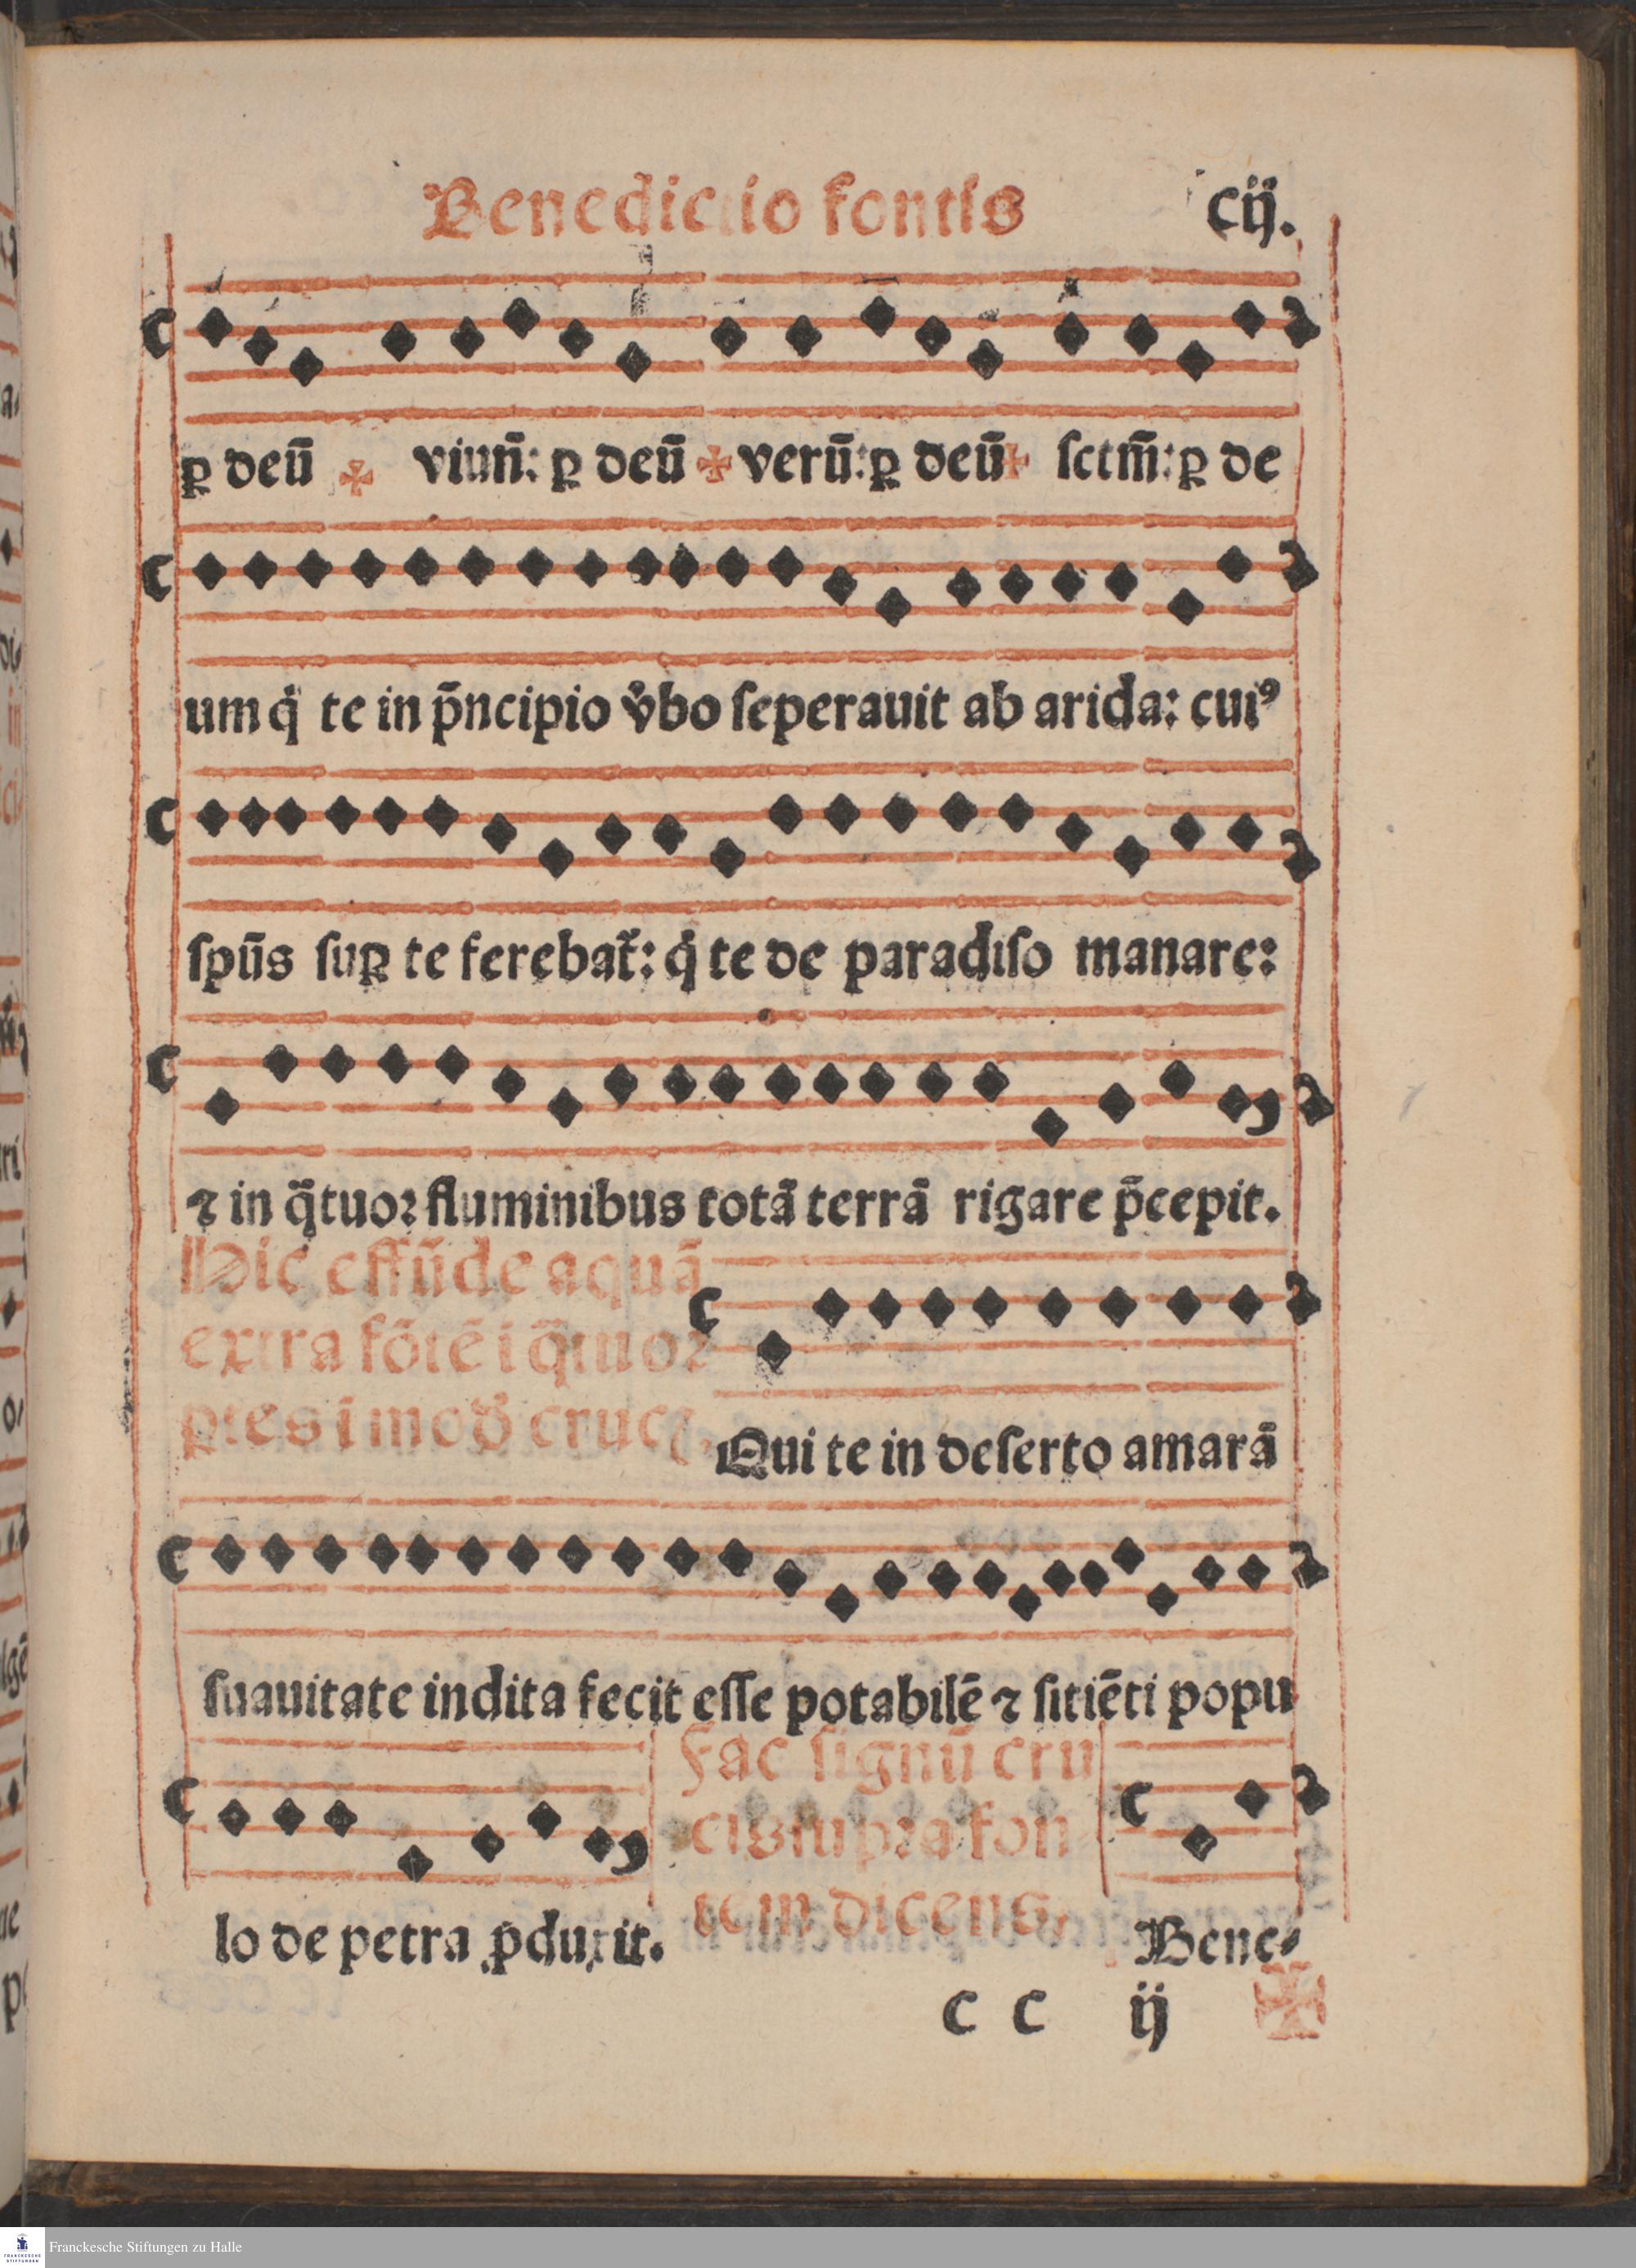 Benedictio fontis cij.
ꝑ deū ✠ viuū: ꝑ deū ✠ verū: ꝑ deū ✠ sctm̄: ꝑ de
um q̇ te in p̄ncipio v̓bo seperauit ab arida: cuiꝰ
spūs suꝑ te ferebat̄: q̇ te de paradiso manare:
⁊ in q̄tuor fluminibus totā terrā rigare p̄cepit.
Hic effūde aquā
extra fōtē i q̄tuor
ꝑtes i modū crucꝭ.
Qui te in deserto amarā
suauitate indita fecit esse potabilē ⁊ sitiēti popu
lo de petra ꝓduxit.
Fac signū cru
cis supra fon
tem dicens,
Bene⸗
c c ij ✠
Franckesche Stiftungen zu Halle